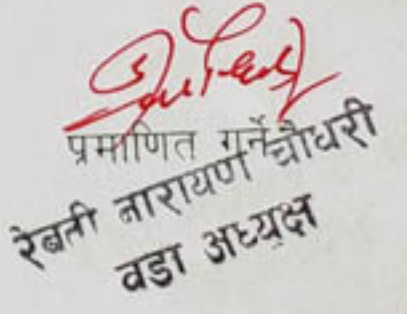 प्रमाणित गर्ने
रेबती नारायण चौधरी
वडा अध्यक्ष